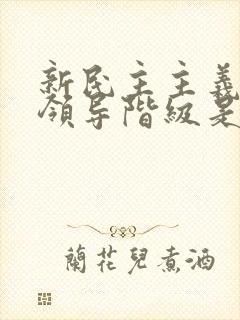 新民主主義
領导階級是
蘭花兒煮酒